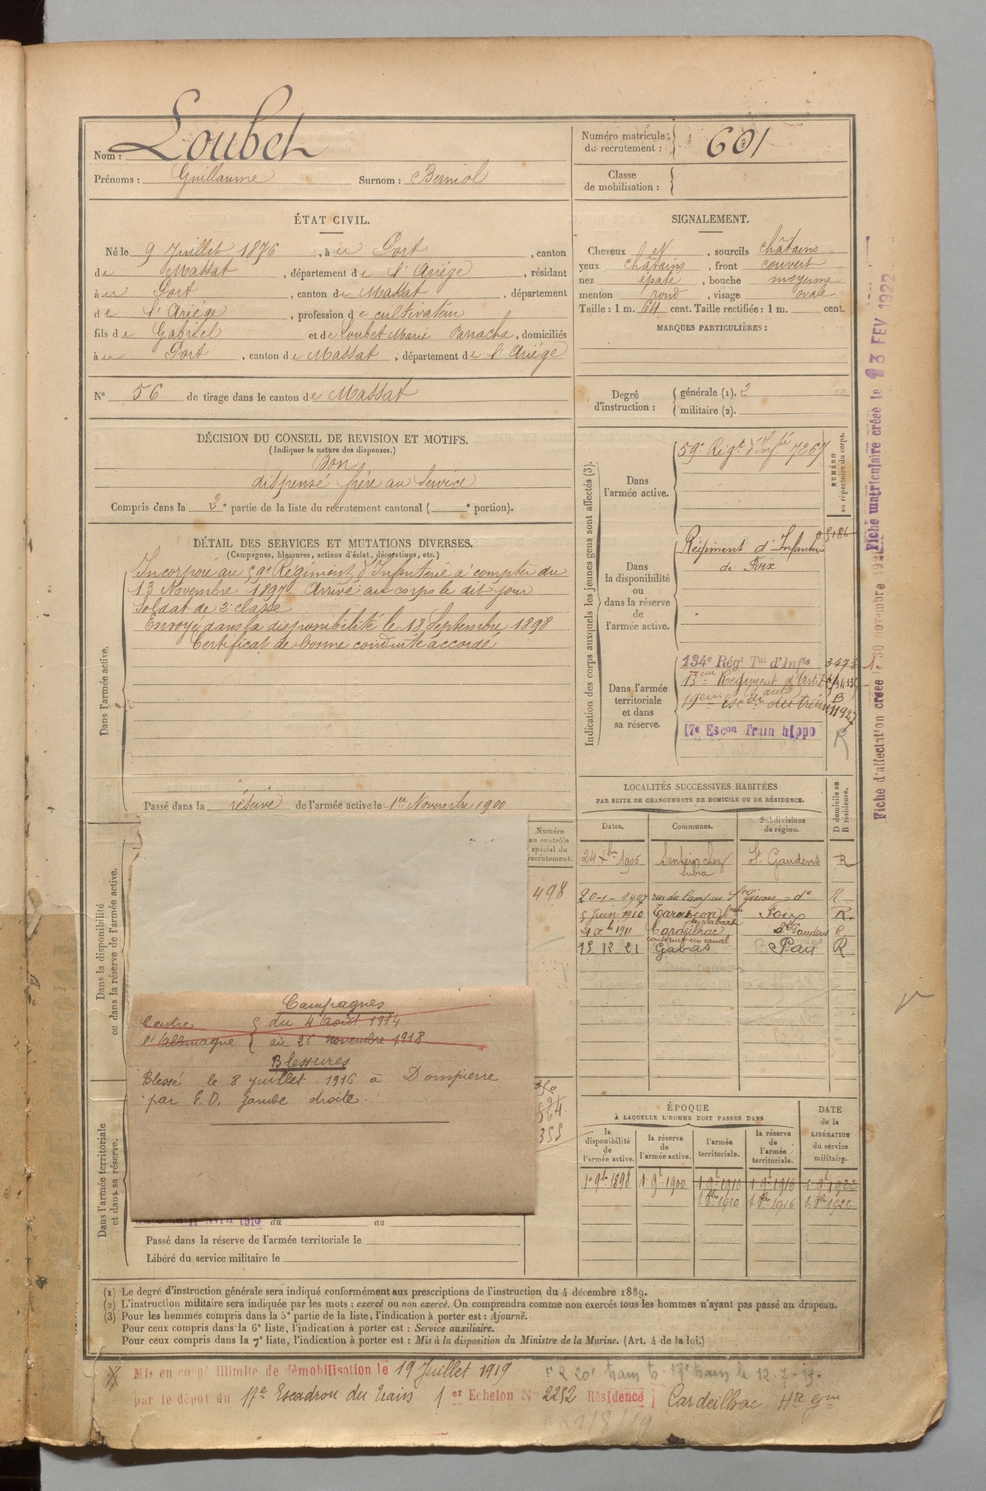 Nom : Loubet
Prénoms : Guillaume Surnom : Berniol
Numéro matricule du recrutement : 601
Classe de mobilisation :
ÉTAT CIVIL.
Né le 9 Juillet 1876, à Port, canton
de Massat, département de l'Ariége, résidant
à Port, canton de Massat, département
de l'Ariége, profession de cultivateur
fils de Gabriel et de Loubet Marie, domiciliés
à Port, canton de Massat, département de l'Ariége
N° 56 de tirage dans le canton de Massat
SIGNALEMENT.
Cheveux, sourcils châtains
yeux châtains, front couvert
nez épaté, bouche moyenne
menton rond, visage ovale
Taille : 1 m. 64 cent. Taille rectifiée : 1 m. cent.
MARQUES PARTICULIÈRES :
Degré d'instruction :
générale (1). 2
militaire (2).
DÉCISION DU CONSEIL DE REVISION ET MOTIFS.
(Indiquer la nature des dispenses.)
Bon
dispensé frère au service
Compris dans la 2e partie de la liste du recrutement cantonal ( e portion).
DÉTAIL DES SERVICES ET MUTATIONS DIVERSES.
(Campagnes, blessures, actions d'éclat, décorations, etc.)
Dans l'armée active.
Incorporé au 59e Régiment d'Infanterie à compter du
13 Novembre 1897. Arrivé au corps le dit jour
Soldat de 2e classe
Envoyé dans la disponibilité le 13 Septembre 1898
Certificat de bonne conduite accordé
Passé dans la réserve de l'armée active le 1er Novembre 1900
Indication des corps auxquels les jeunes gens sont affectés (3).
NUMÉRO au répertoire du corps.
Dans l'armée active.
59e Régt d'Infie 7267
Dans la disponibilité ou dans la réserve de l'armée active.
Régiment d'Infanterie
de Foix
Dans l'armée territoriale et dans sa réserve.
134e Régt Tal d'Infie
13eme Régiment d'Artie
19eme Escon
17e Escon Train hippo
Fiche matriculaire créée le 23 FEV 1922
Fiche d'affectation créée le 30 novembre
LOCALITÉS SUCCESSIVES HABITÉES
PAR SUITE DE CHANGEMENTS DE DOMICILE OU DE RÉSIDENCE.
Dates. Communes. Subdivisions de région. D domicile ou R résidence.
24 Xbre 1906 Sentein chez Subra St Gaudens R
20-1-1907 rue du Campas R
5 Juin 1910 Tarascon Foix R
Xbre 1911 Cardeilhac St Gaudens
15 12 21 Gabas Pau R
Numéro au contrôle spécial du recrutement.
498
Dans la disponibilité ou dans la réserve de l'armée active.
Campagnes
Contre l'Allemagne { du 4 août 1914
au 26 novembre 1918.
Blessures
Blessé le 8 juillet 1916 à Dompierre
par E.O. jambe droite.
Dans l'armée territoriale et dans sa réserve.
du au
Passé dans la réserve de l'armée territoriale le
Libéré du service militaire le
ÉPOQUE
À LAQUELLE L'HOMME DOIT PASSER DANS
la disponibilité de l'armée active. la réserve de l'armée active. l'armée territoriale. la réserve de l'armée territoriale. DATE de la LIBÉRATION du service militaire.
1er 9bre 1898 1 9bre 1900 1 9bre 1910 1 9bre 1916 1 9bre 1922
1 8bre 1910 1 8bre 1916 1 8bre 1922
(1) Le degré d'instruction générale sera indiqué conformément aux prescriptions de l'instruction du 4 décembre 1889.
(2) L'instruction militaire sera indiquée par les mots : exercé ou non exercé. On comprendra comme non exercés tous les hommes n'ayant pas passé au drapeau.
(3) Pour les hommes compris dans la 5e partie de la liste, l'indication à porter est : Ajourné.
Pour ceux compris dans la 6e liste, l'indication à porter est : Service auxiliaire.
Pour ceux compris dans la 7e liste, l'indication à porter est : Mis à la disposition du Ministre de la Marine. (Art. 4 de la loi.)
Mis en congé illimité de démobilisation le 19 Juillet 1919
par le dépôt du 17e Escadron du Train 1er Echelon N° 2252 Résidence Cardeilhac Hte Gne